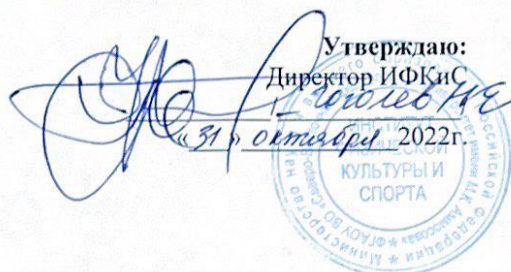 Утверждаю:
Директор ИФКиС
Гоголев Н.Е
«31» октября 2022г.
ИНСТИТУТ
ФИЗИЧЕСКОЙ
КУЛЬТУРЫ И
СПОРТА